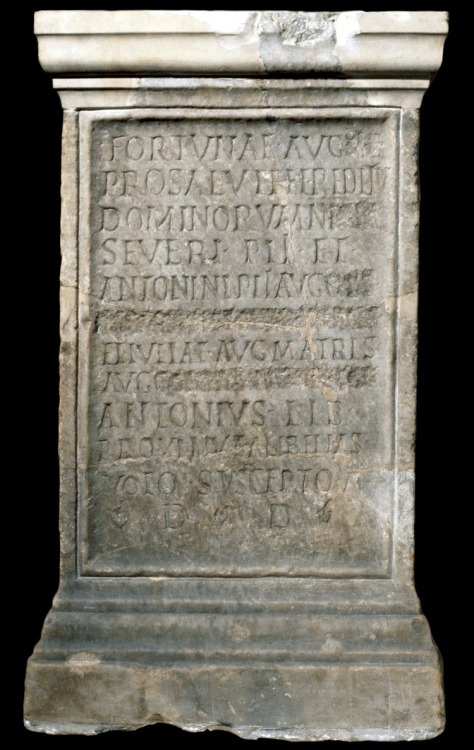 FORTVNAE AVG
PRO SALVTE
DOMINORVM N
SEVERI PII ET
ANTONINI PII AVGG
ET IVLIAE AVG MATRIS
AVGG
ANTONIVS LIB
PROXIMVS A LIBELLIS
VOTO SVSCEPTO
D D